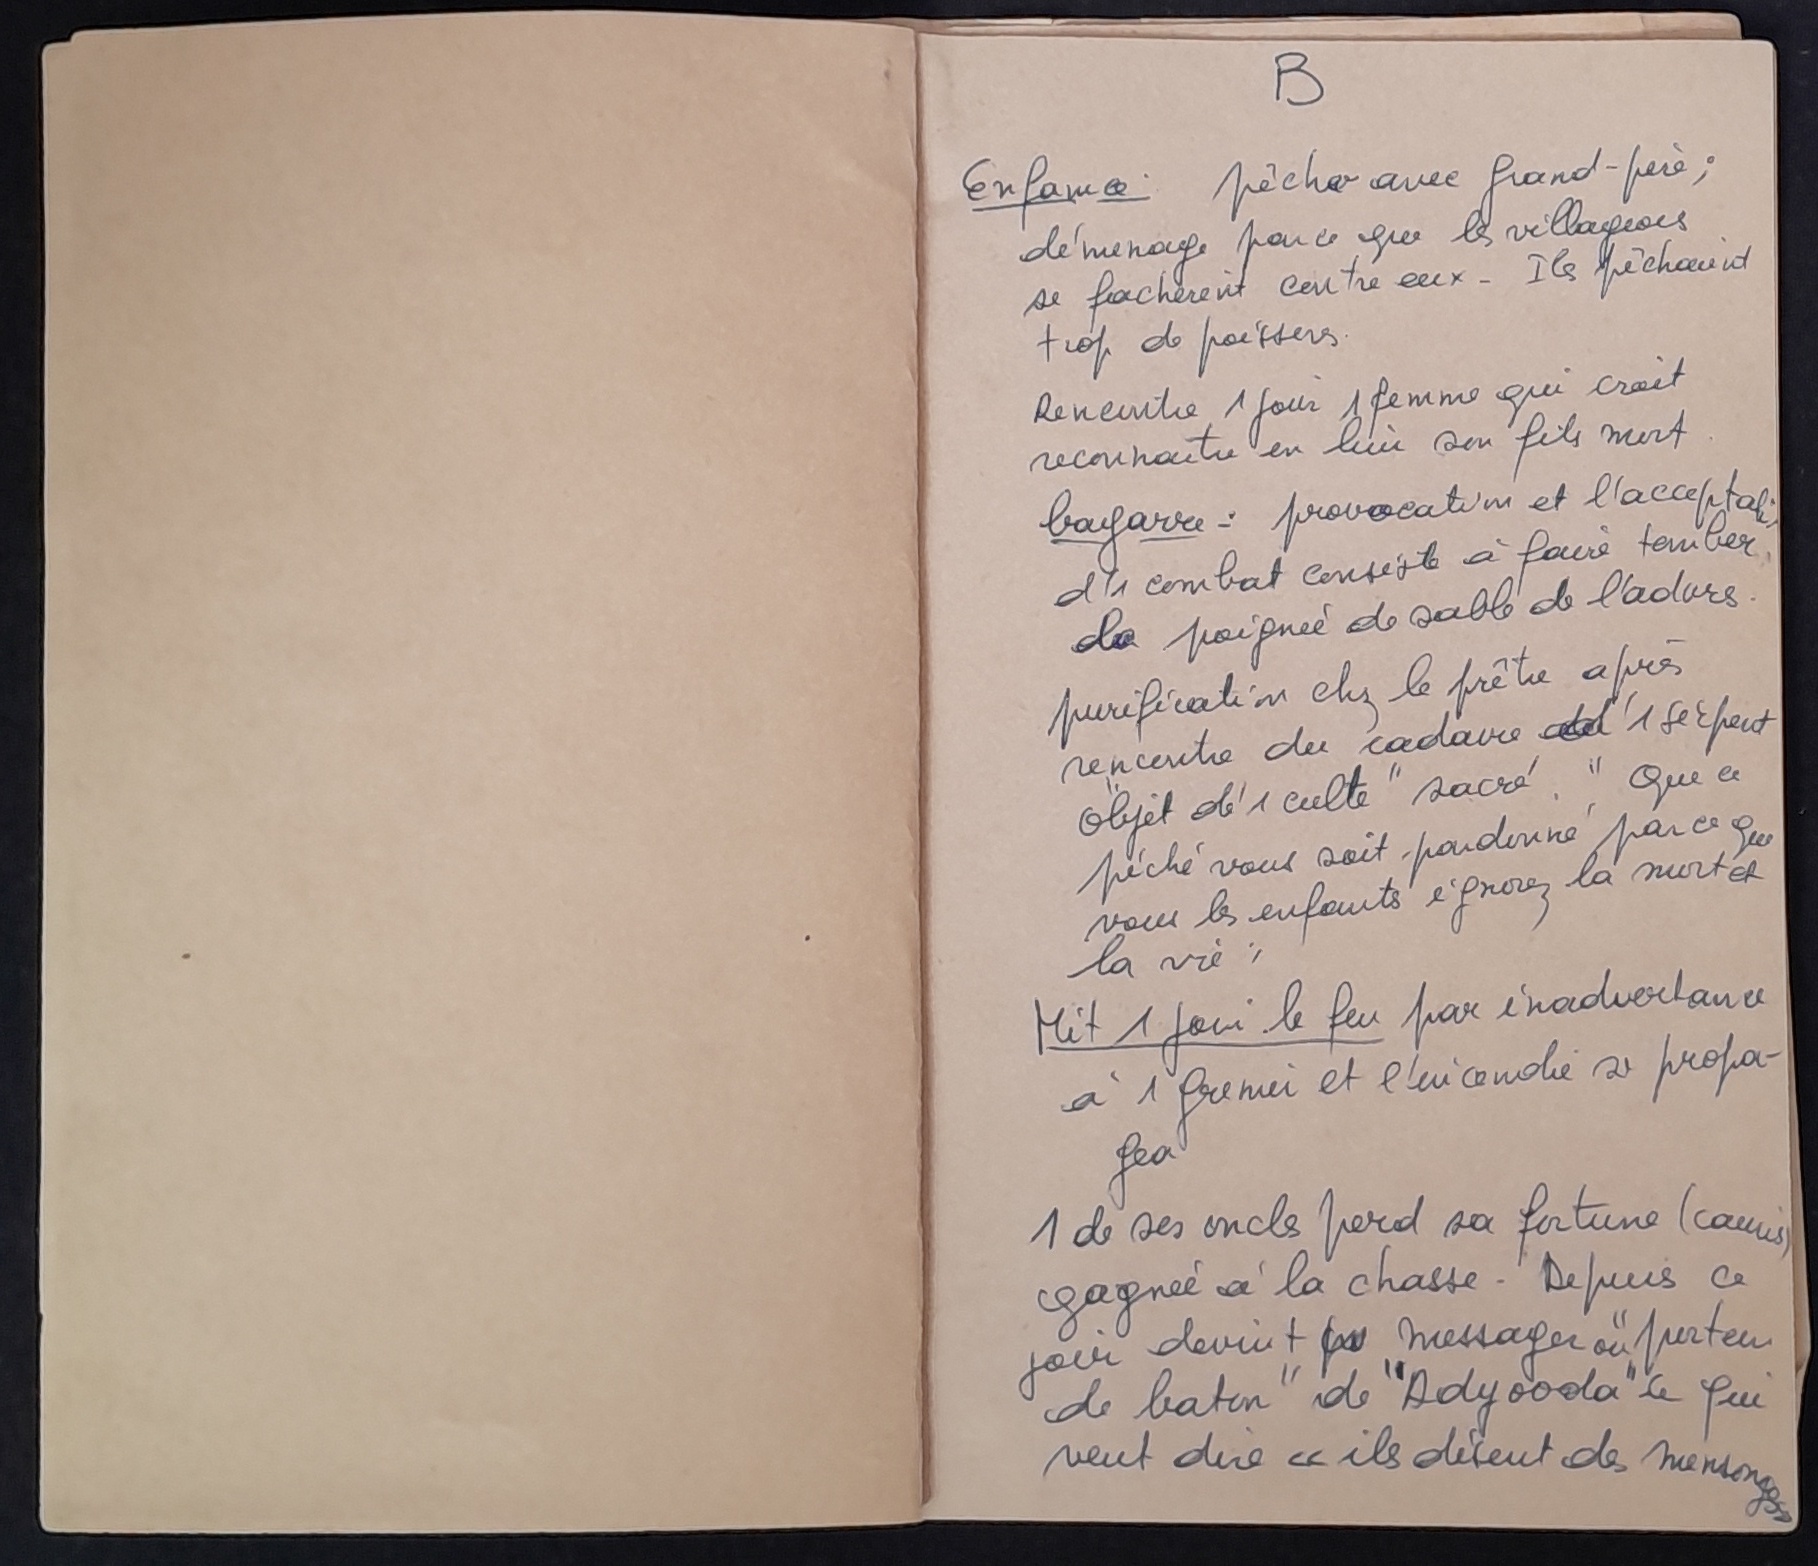 B
Enfance : pêcher avec grand-père ;
déménage parce que les villageois
se fachèrent contre eux - Ils pêchaient
trop de poissons.
Rencontre 1 jour 1 femme qui croit
reconnaître en lui son fils mort.
bagarre : provocation et l'acceptati
d'1 combat consiste à faire tomber
la poignée de sable de l'advers.
purification chez le prêtre après
rencontre du cadavre d'1 serpent
"objet d'1 culte" sacré. " Que ce
péché vous soit pardonné parce que
vous les enfants ignorez la mort et
la vie "
Mit 1 jour le feu par inadvertance
à 1 grenier et l'incendie se propa-
gea
1 de ses oncles perd sa fortune (cauris)
gagnée à la chasse - Depuis ce
jour devint messager ou "porteur
de baton" de "Adyooda" ce qui
veut dire « ils disent des mensonges